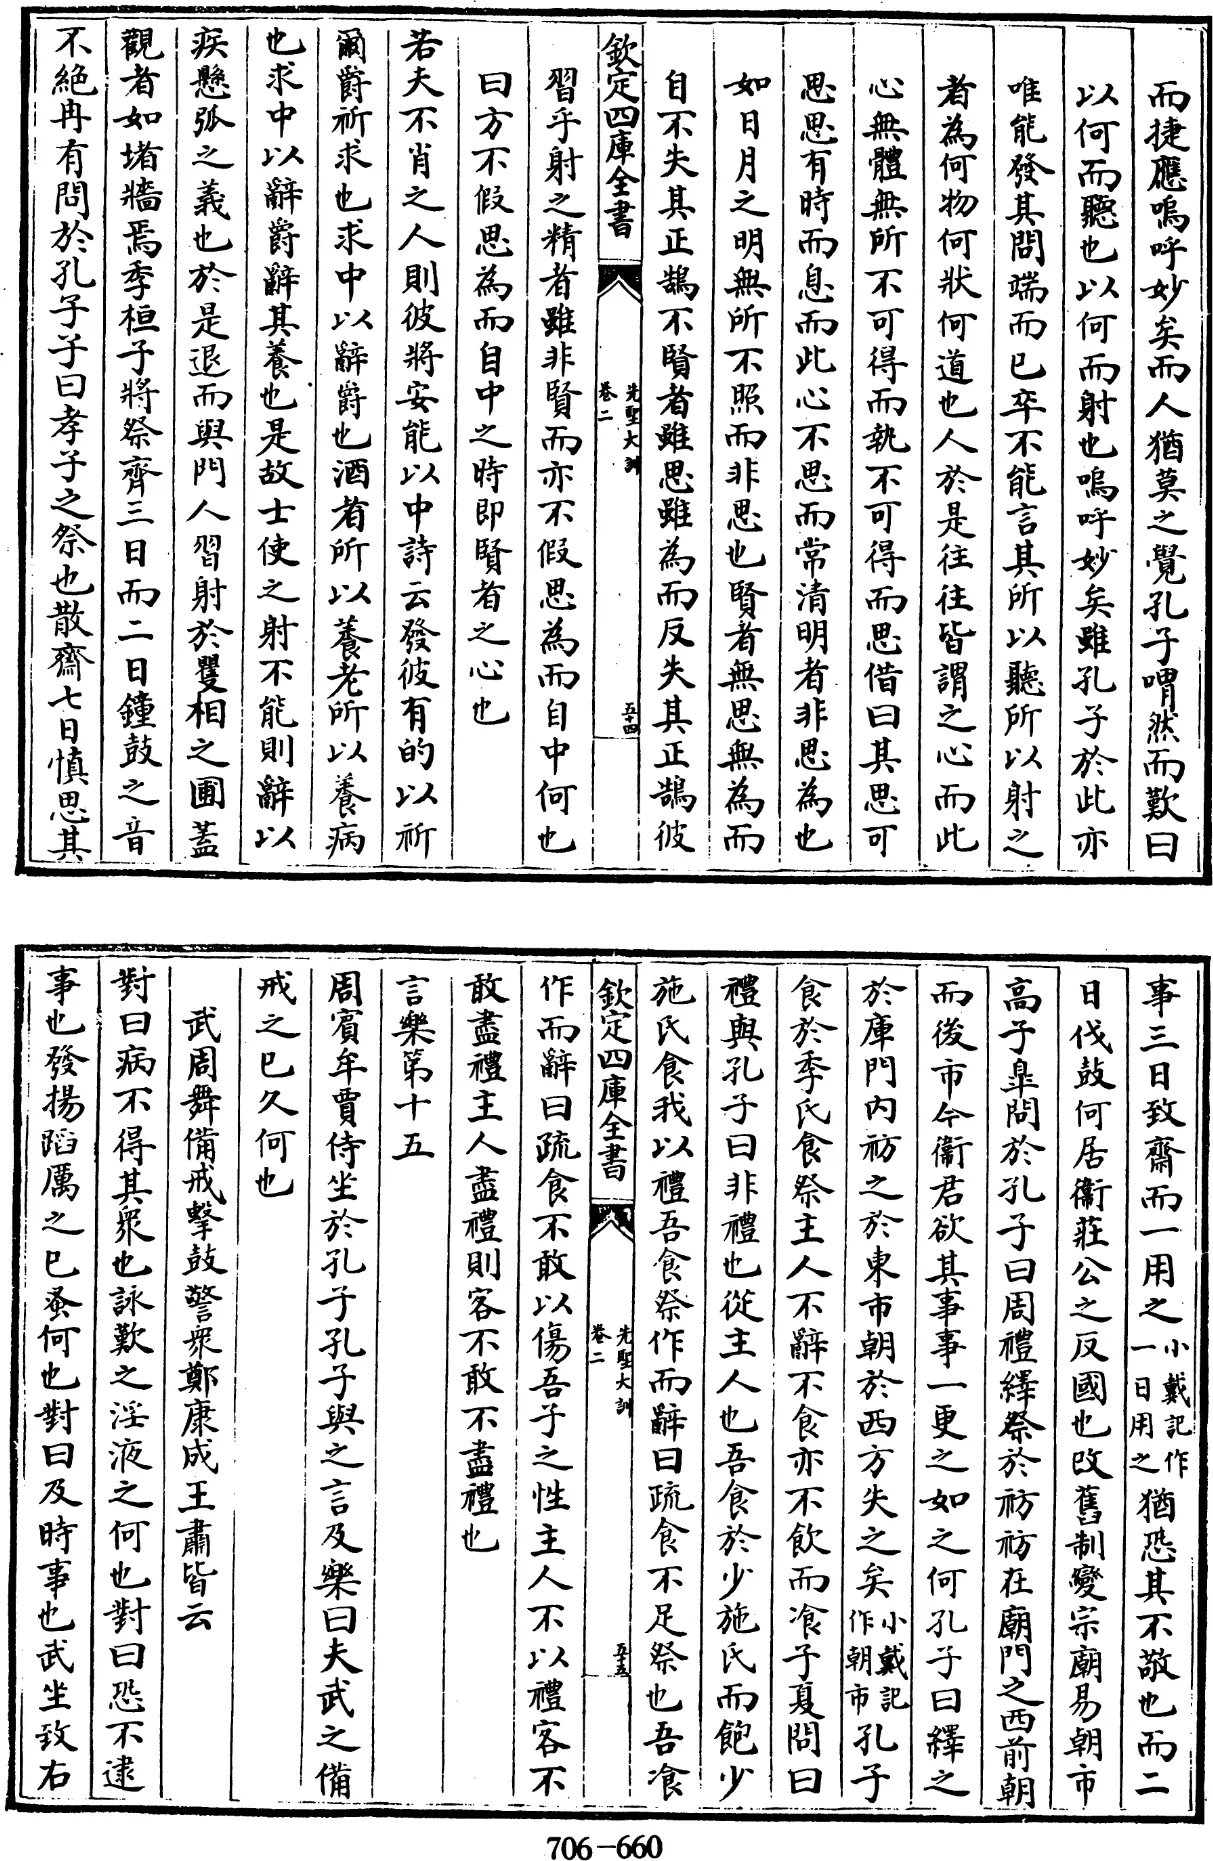 而捷應嗚呼妙矣而人猶莫之覺孔子喟然而歎曰
以何而聽也以何而射也嗚呼妙矣雖孔子於此亦
唯能發其問端而已卒不能言其所以聽所以射之
者為何物何狀何道也人於是往往皆謂之心而此
心無體無所不可得而執不可得而思借曰其思可
思思有時而息而此心不思而常清明者非思為也
如日月之明無所不照而非思也賢者無思無為而
自不失其正鵠不賢者雖思雖為而反失其正鵠彼
欽定四庫全書
先聖大訓
卷二
五十四
習乎射之精者雖非賢而亦不假思為而自中何也
曰方不假思為而自中之時即賢者之心也
若夫不肖之人則彼將安能以中詩云發彼有的以祈
爾爵祈求也求中以辭爵也酒者所以養老所以養病
也求中以辭爵辭其養也是故士使之射不能則辭以
疾懸弧之義也於是退而與門人習射於矍相之圃蓋
觀者如堵牆焉季桓子將祭齊三日而二日鐘鼓之音
不絕冉有問於孔子子曰孝子之祭也散齋七日慎思其
事三日致齋而一用之小戴記作一日用之猶恐其不敬也而二
日伐鼓何居衞莊公之反國也改舊制變宗廟易朝市
高子臯問於孔子曰周禮繹祭於祊祊在廟門之西前朝
而後市今衞君欲其事事一更之如之何孔子曰繹之
於庫門內祊之於東市朝於西方失之矣小戴記作朝市孔子
食於季氏食祭主人不辭不食亦不飲而飡子夏問曰
禮與孔子曰非禮也從主人也吾食於少施氏而飽少
施氏食我以禮吾食祭作而辭曰疏食不足祭也吾飡
欽定四庫全書
先聖大訓
卷二
五十五
作而辭曰疏食不敢以傷吾子之性主人不以禮客不
敢盡禮主人盡禮則客不敢不盡禮也
言樂第十五
周賓牟賈侍坐於孔子孔子與之言及樂曰夫武之備
戒之已久何也
武周舞備戒擊鼓警衆鄭康成王肅皆云
對曰病不得其衆也詠歎之淫液之何也對曰恐不逮
事也發揚蹈厲之已蚤何也對曰及時事也武坐致右
706-660